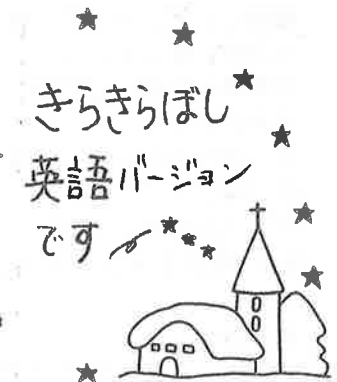 きらきらぼし
英語バージョン
です